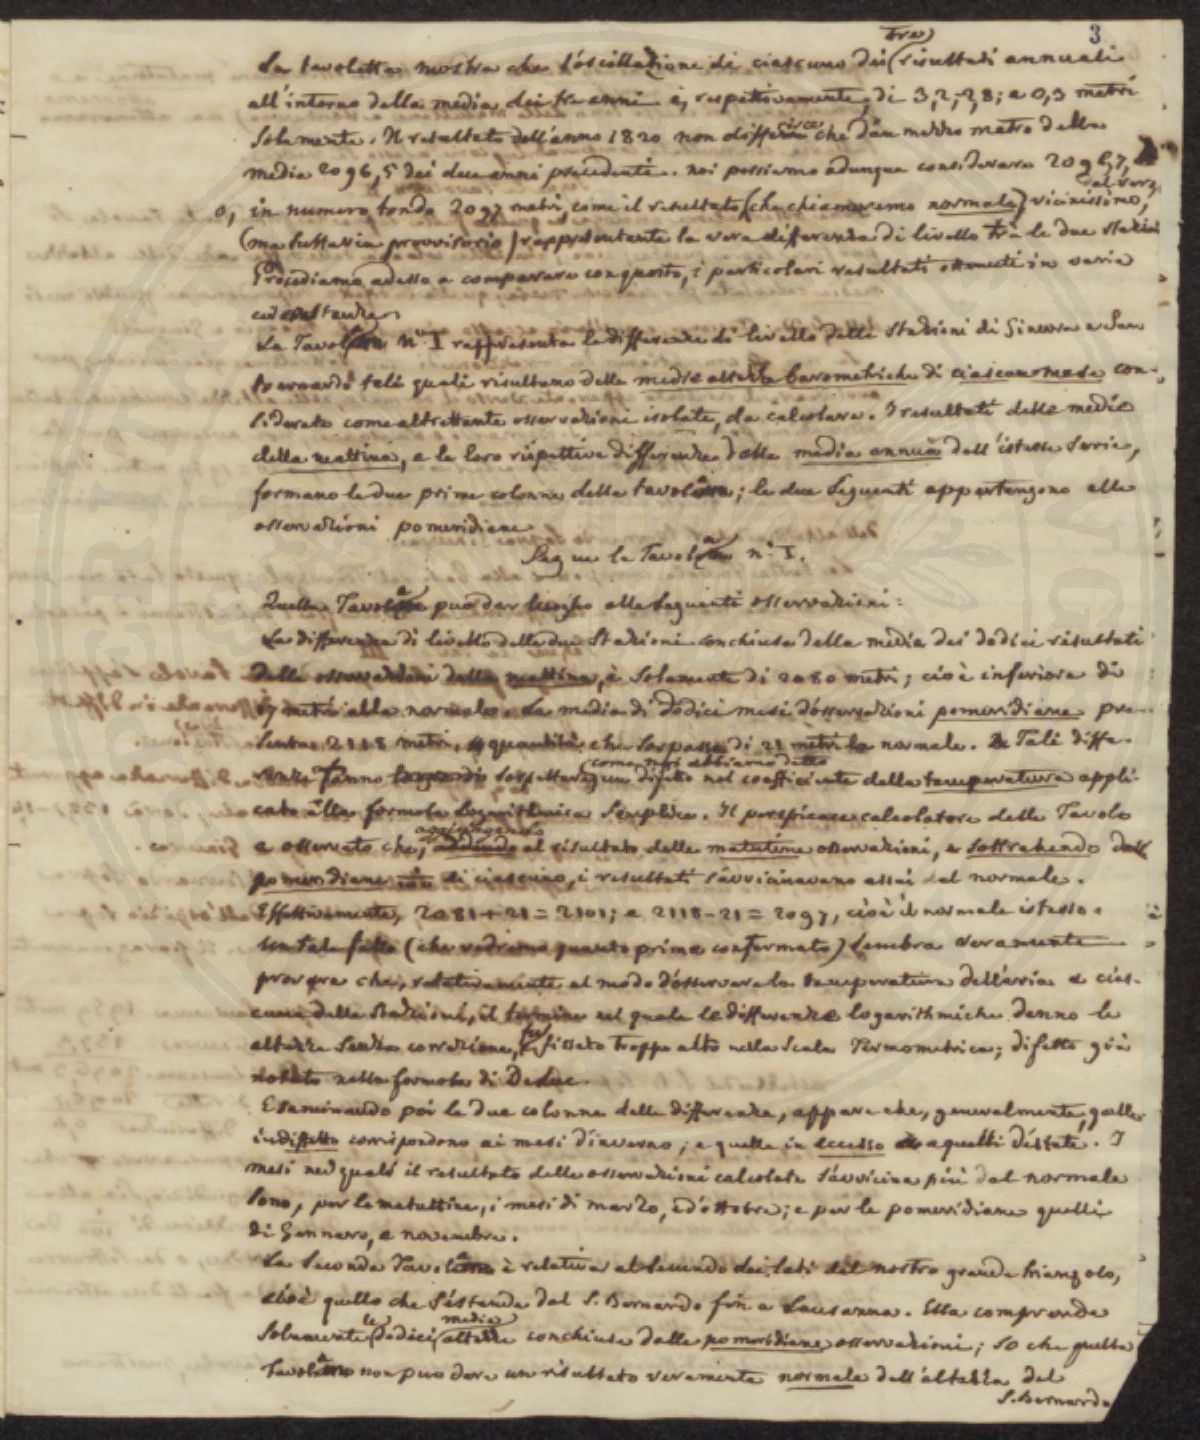 3
tre
La tavoletta mostra che l'oscillazione di ciascuno dei risultati annuali
all'intorno della media dei tre anni è, rispettivamente, di 3,2,-2,8; e 0,3 metri
solamente. Il resultato dell'anno 1820 non differisce che d'un mezzo metro della
media 2096,5 dei due anni precedenti. noi possiamo adunque considerare 2096,7,
o, in numero tondo 2097 metri, come il resultato (che chiameremo normale) vicinissimo, al vero,
(ma tuttavia provvisorio) rappresentante la vera differenza di livello tra le due stazioni
Procediamo adesso a comparare con questo, i particolari resultati ottenuti in varie
circostanze.
La Tavola n.º I rappresenta le differenze di livello delle stazioni di Ginevra e San
Bernardo tali quali risultano dalle medie altezze barometriche di ciascun mese con-
siderate come altrettante osservazioni isolate, da calcolare. I resultati delle medie
della mattina, e le loro rispettive differenze dalla media annua dell'istessa serie,
formano le due prime colonne della tavola; le due seguenti appartengono alle
osservazioni pomeridiane
Segue la Tavola n.º I.
Quella Tavola può dar luogo alle seguenti osservazioni:
La differenza di livello delle due Stazioni conchiusa dalla media dei dodici risultati
delle osservazioni della mattina, è solamente di 2080 metri; cioè inferiore di
17 metri alla normale. La media di dodici mesi d'osservazioni pomeridiane pre-
senta 2118 metri, quantità che sorpassa di 21 metri la normale. Tali diffe-
renze fanno sospettare, come noi abbiamo detto un difetto nel coefficiente della temperatura appli-
cato alla formola logarithmica semplice. Il perspicace calcolatore delle Tavole
aggiungendo
a osservato che, al risultato delle matutine osservazioni, e sottraendo dalle
pomeridiane di ciascuno, i resultati s'avvicinavano assai al normale.
Effettivamente, 2081+21=2101; e 2118-21=2097, cioè il normale istesso.
Un tale fatto (che vedremo quanto prima confermato) sembra veramente
provare che, relativamente al modo d'osservare la temperatura dell'aria e cias-
cuna delle Stazioni, il termine nel quale le differenze logarithmiche danno le
altezze senza correzione, fu fissato troppo alto nella scala Termometrica; difetto già
notato nella formola di Deluc.
Esaminando poi le due colonne delle differenze, appare che, generalmente, quelle
in difetto corrispondono ai mesi d'inverno; e quelle in eccesso a quelli d'estate. I
mesi nei quali il resultato delle osservazioni calcolate s'avvicina più dal normale
sono, per le matuttine, i mesi di marzo, ed ottobre; e per le pomeridiane quelli
di Gennaro, e novembre.
La seconda Tavola è relativa al secondo dei lati del nostro grande triangolo,
cioè quello che s'estende dal S. Bernardo fin a Lausanna. Ella comprende
solamente le dodici medie altezze conchiuse dalle pomeridiane osservazioni; so che quella
Tavola non può dare un risultato veramente normale dell'altezza del
S. Bernardo